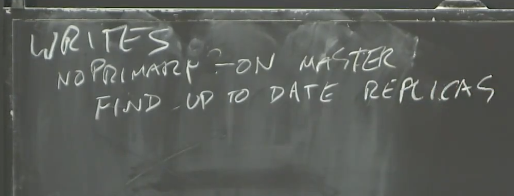 WRITES
NO PRIMARY - ON MASTER
FIND UP TO DATE REPLICAS